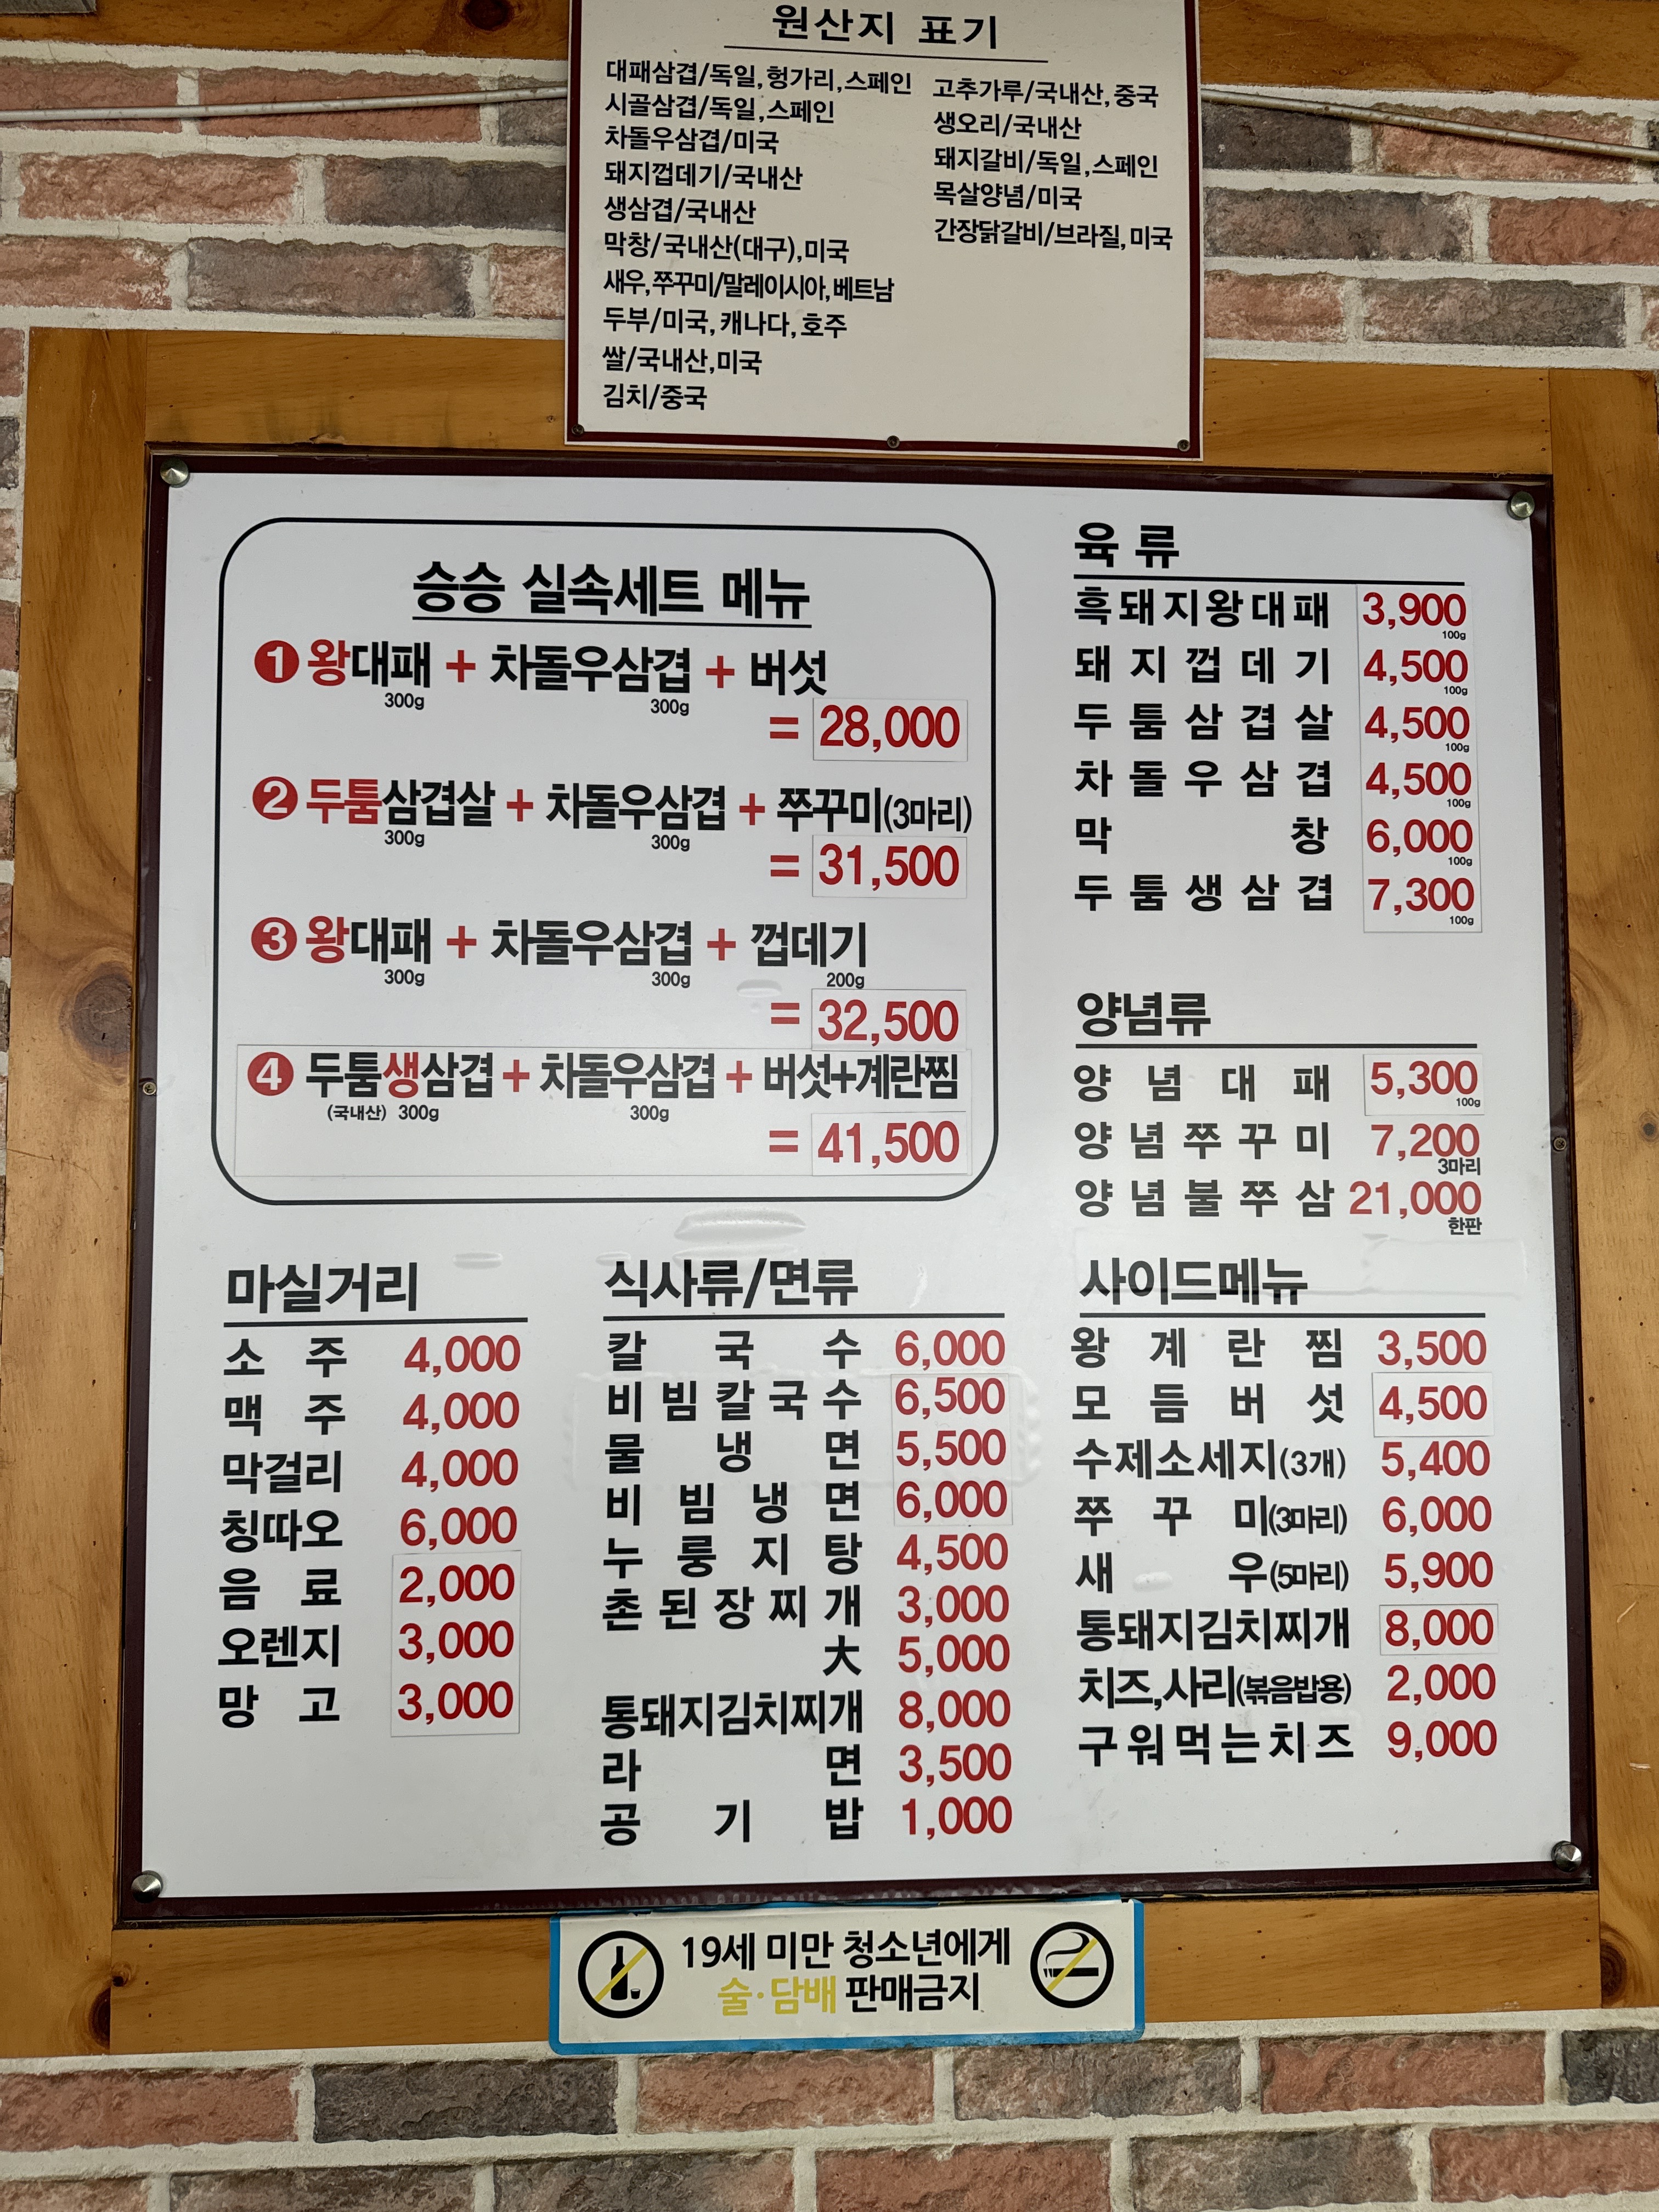 원산지 표기
대패삼겹/독일,헝가리,스페인
시골삼겹/독일,스페인
차돌우삼겹/미국
돼지껍데기/국내산
생삼겹/국내산
막창/국내산(대구),미국
새우,쭈꾸미/말레이시아,베트남
두부/미국,캐나다,호주
쌀/국내산,미국
김치/중국
고추가루/국내산,중국
생오리/국내산
돼지갈비/독일,스페인
목살양념/미국
간장닭갈비/브라질,미국
승승 실속세트 메뉴
1 왕대패 + 차돌우삼겹 + 버섯
300g 300g
= 28,000
2 두툼삼겹살 + 차돌우삼겹 + 쭈꾸미(3마리)
300g 300g
= 31,500
3 왕대패 + 차돌우삼겹 + 껍데기
300g 300g 200g
= 32,500
4 두툼생삼겹 + 차돌우삼겹 + 버섯+계란찜
(국내산) 300g 300g
= 41,500
육류
흑돼지왕대패 3,900
100g
돼지껍데기 4,500
100g
두툼삼겹살 4,500
100g
차돌우삼겹 4,500
100g
막창 6,000
100g
두툼생삼겹 7,300
100g
양념류
양념대패 5,300
100g
양념쭈꾸미 7,200
3마리
양념불쭈삼 21,000
한판
마실거리
소주 4,000
맥주 4,000
막걸리 4,000
칭따오 6,000
음료 2,000
오렌지 3,000
망고 3,000
식사류/면류
칼국수 6,000
비빔칼국수 6,500
물냉면 5,500
비빔냉면 6,000
누룽지탕 4,500
촌된장찌개 3,000
大 5,000
통돼지김치찌개 8,000
라면 3,500
공기밥 1,000
사이드메뉴
왕계란찜 3,500
모듬버섯 4,500
수제소세지(3개) 5,400
쭈꾸미(3마리) 6,000
새우(5마리) 5,900
통돼지김치찌개 8,000
치즈,사리(볶음밥용) 2,000
구워먹는치즈 9,000
19세 미만 청소년에게
술·담배 판매금지